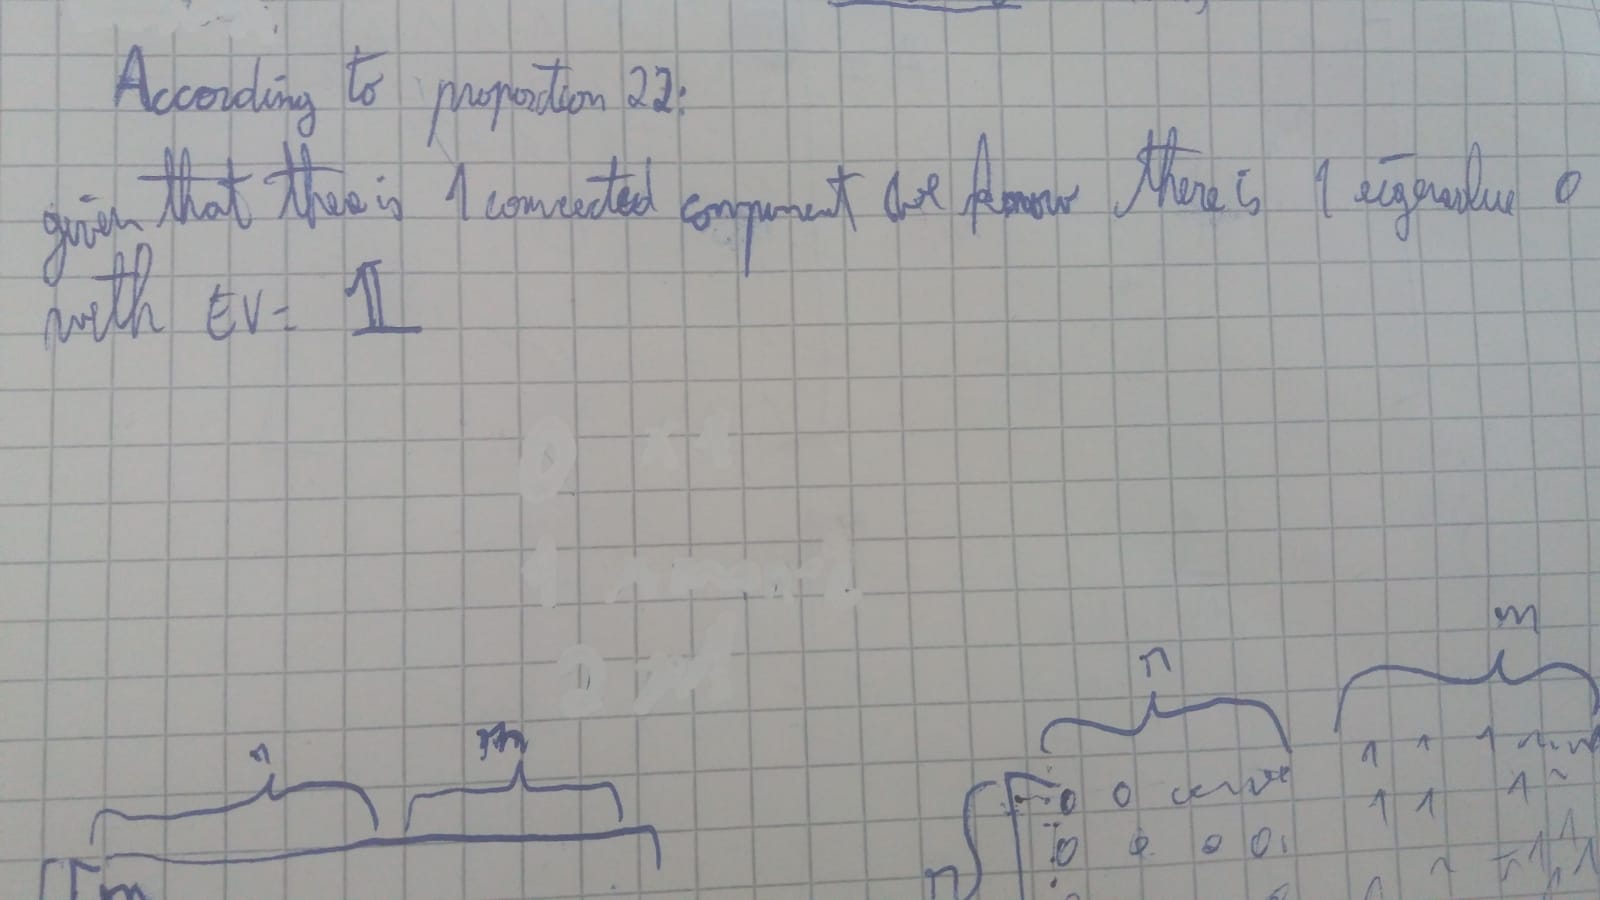 According to proposition 22:
given that there is 1 connected component we know there is 1 eigenvalue 0
with EV = 𝟙
0 x1
1
2
m
n
n m
1 1 1
0 0
1 1 1
0 0 0 0
n
m